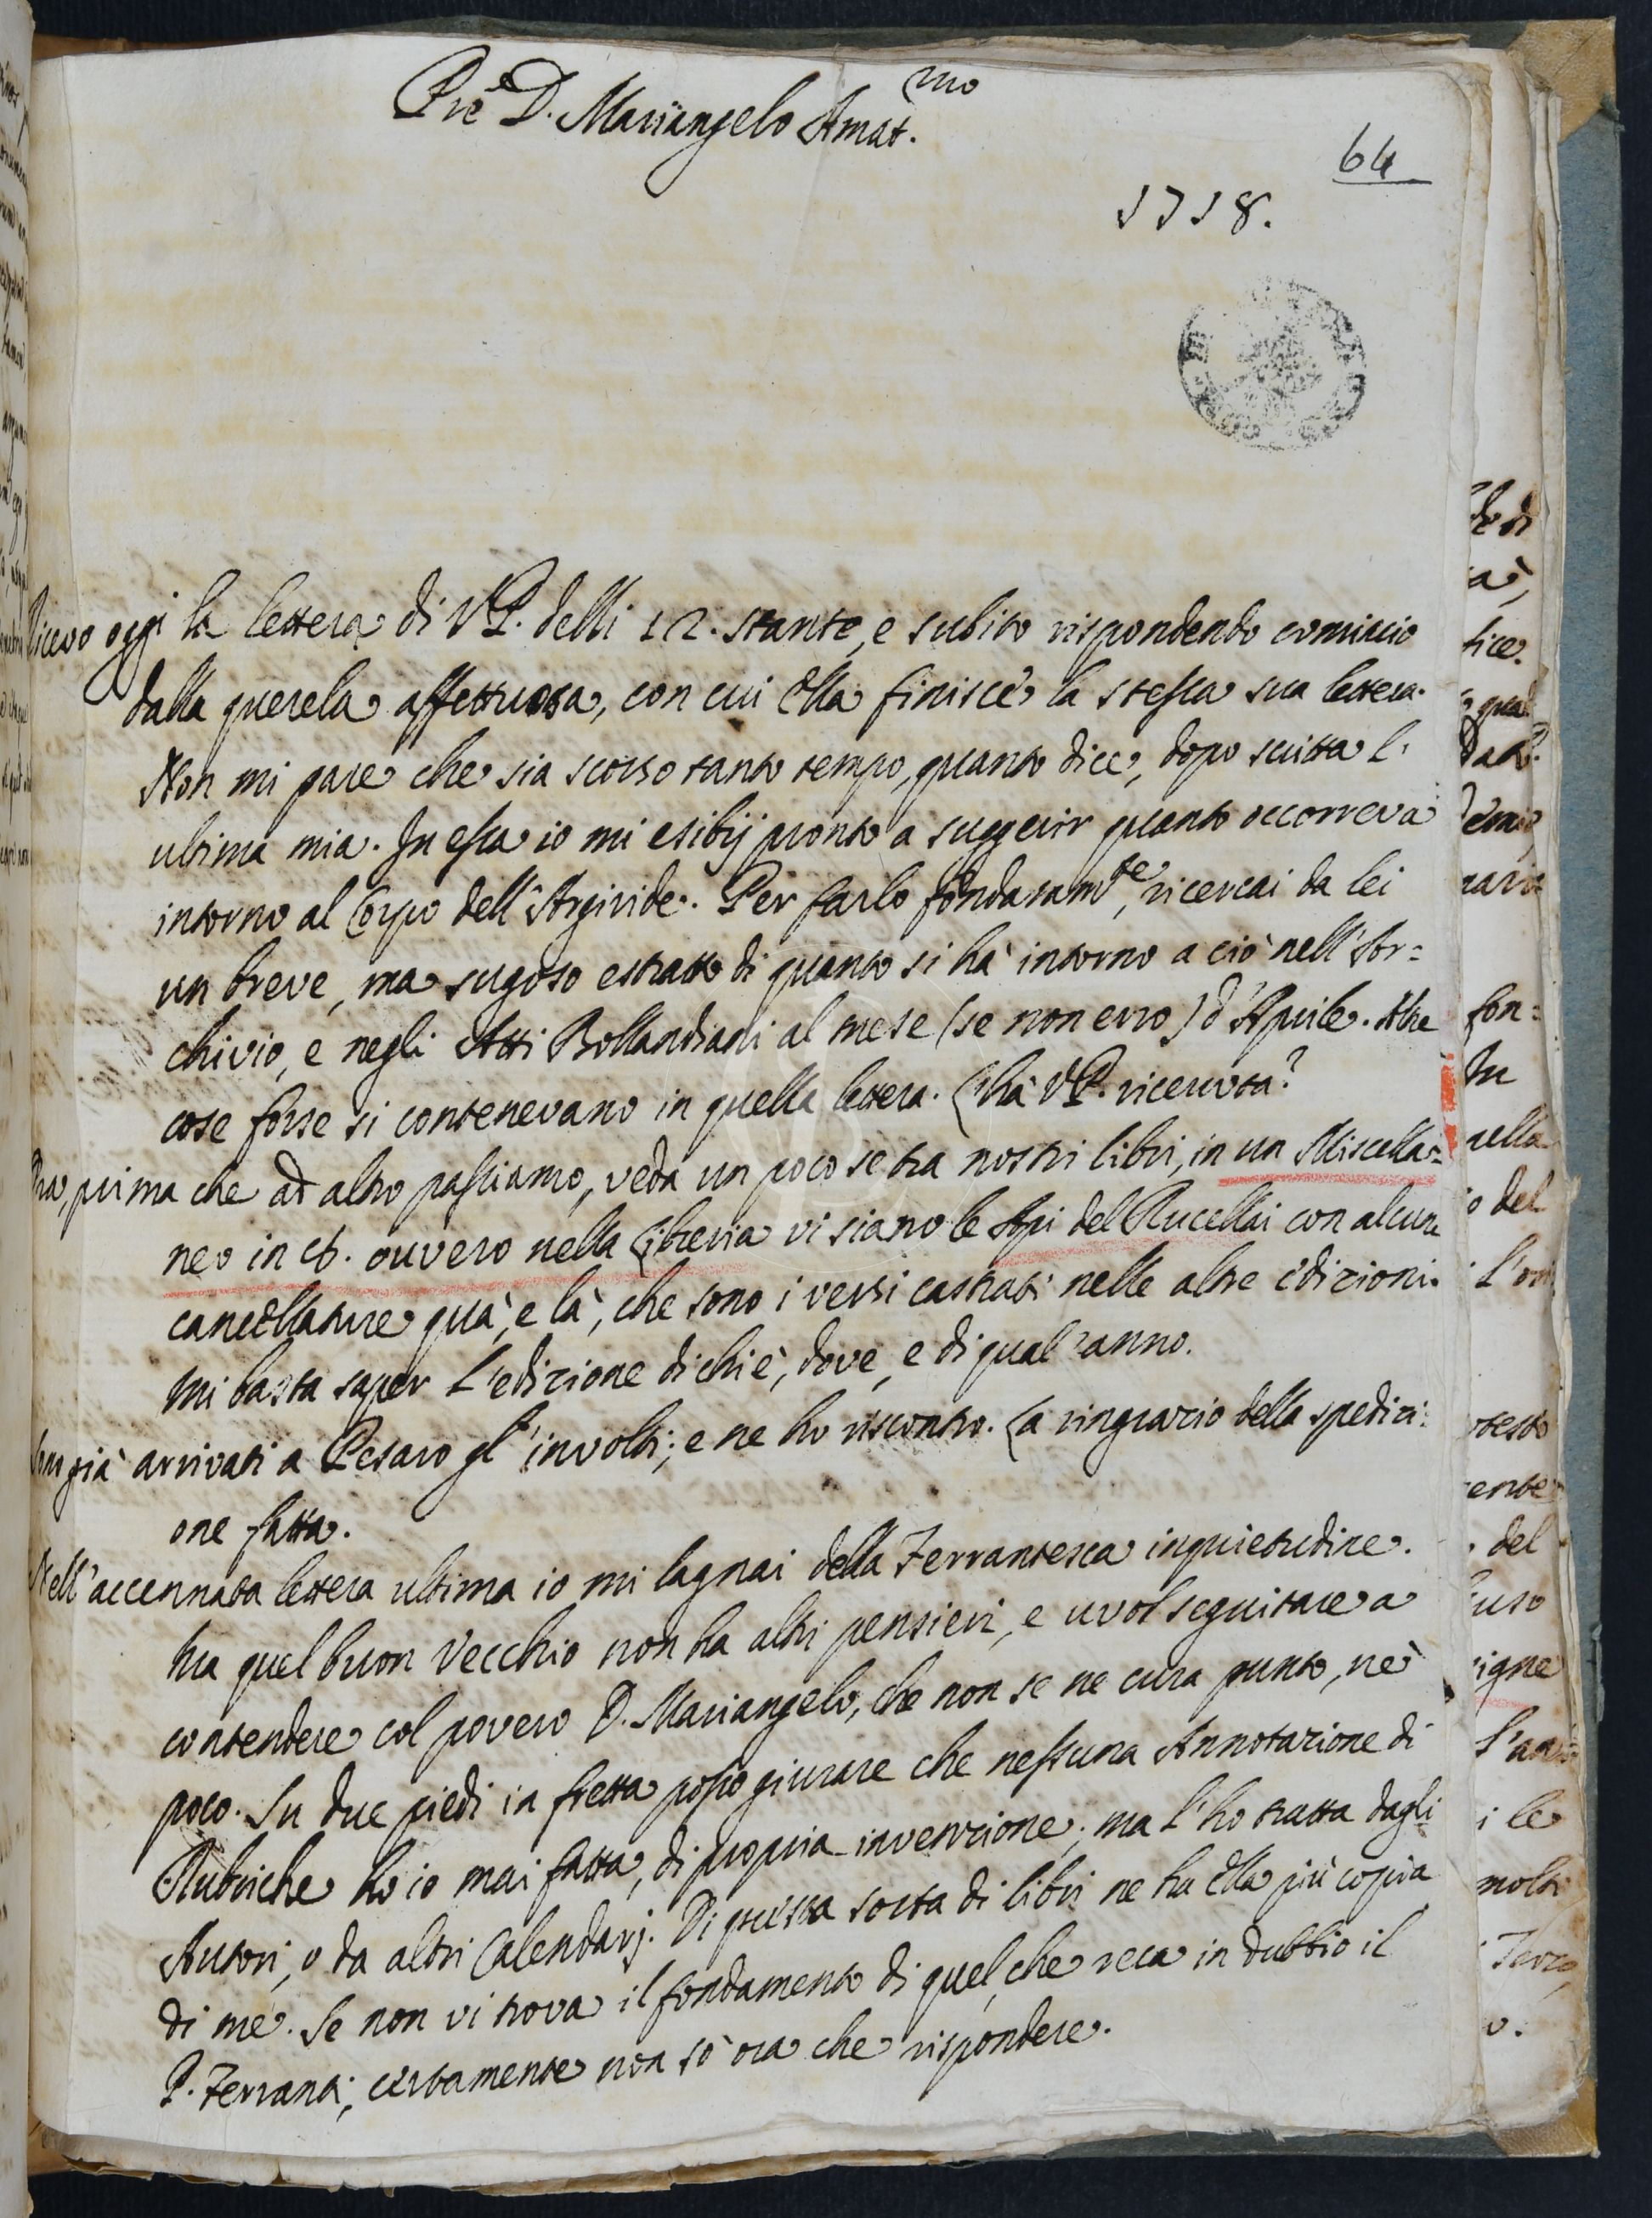 Pre D. Mariangelo Amat.mo
64
1718.
Ricevo oggi la lettera di V.P. delli 12. stante, e subito rispondendo comincio
dalla querela affettuosa, con cui Ella finisce la stessa sua lettera.
Non mi pare che sia scorso tanto tempo, quanto dice, dopo scritta l'
ultima mia. In essa io mi esibij pronto a suggerir quanto occorreva
intorno al Corpo dell'Argiride. Per farlo fondatam.te, ricercai da lei
un breve, ma sugoso estratto di quanto si hà intorno a ciò nell'Ar=
chivio, e negli Atti Bollandiani al mese (se non erro) d'Aprile. Altre
cose forse si contenevano in quella lettera. L'hà V.P. ricevuta?
Ora, prima che ad altro passiamo, veda un poco se tra nostri libri, in un Miscella=
neo in Ch. ouvero nella Libreria vi siano le Api del Rucellai con alcune
cancellature quà, e là, che sono i versi castrati nelle altre edizioni.
Mi basta saper l'edizione di chi è, dove, e di qual'anno.
Son già arrivati a Pesaro gl'involti; e ne ho riscontro. La ringrazio della spedizi=
one fatta.
Nell'accennata lettera ultima io mi lagnai della Ferrantesca inquietudine.
Ma quel buon Vecchio non ha altri pensieri, e vuol seguitare a
contendere col povero D. Mariangelo, che non se ne cura punto, nè
poco. Su due piedi in fretta posso giurare che nessuna Annotazione di
Rubriche ho io mai fatta, di propria invenzione; ma l'ho tratta dagli
Autori, o da altri Calendarj. Di questa sorta di libri ne ha Ella più copia
di me. Se non vi trova il fondamento di quel, che reca in dubbio il
P. Ferranti; certamente non sò ora che rispondere.